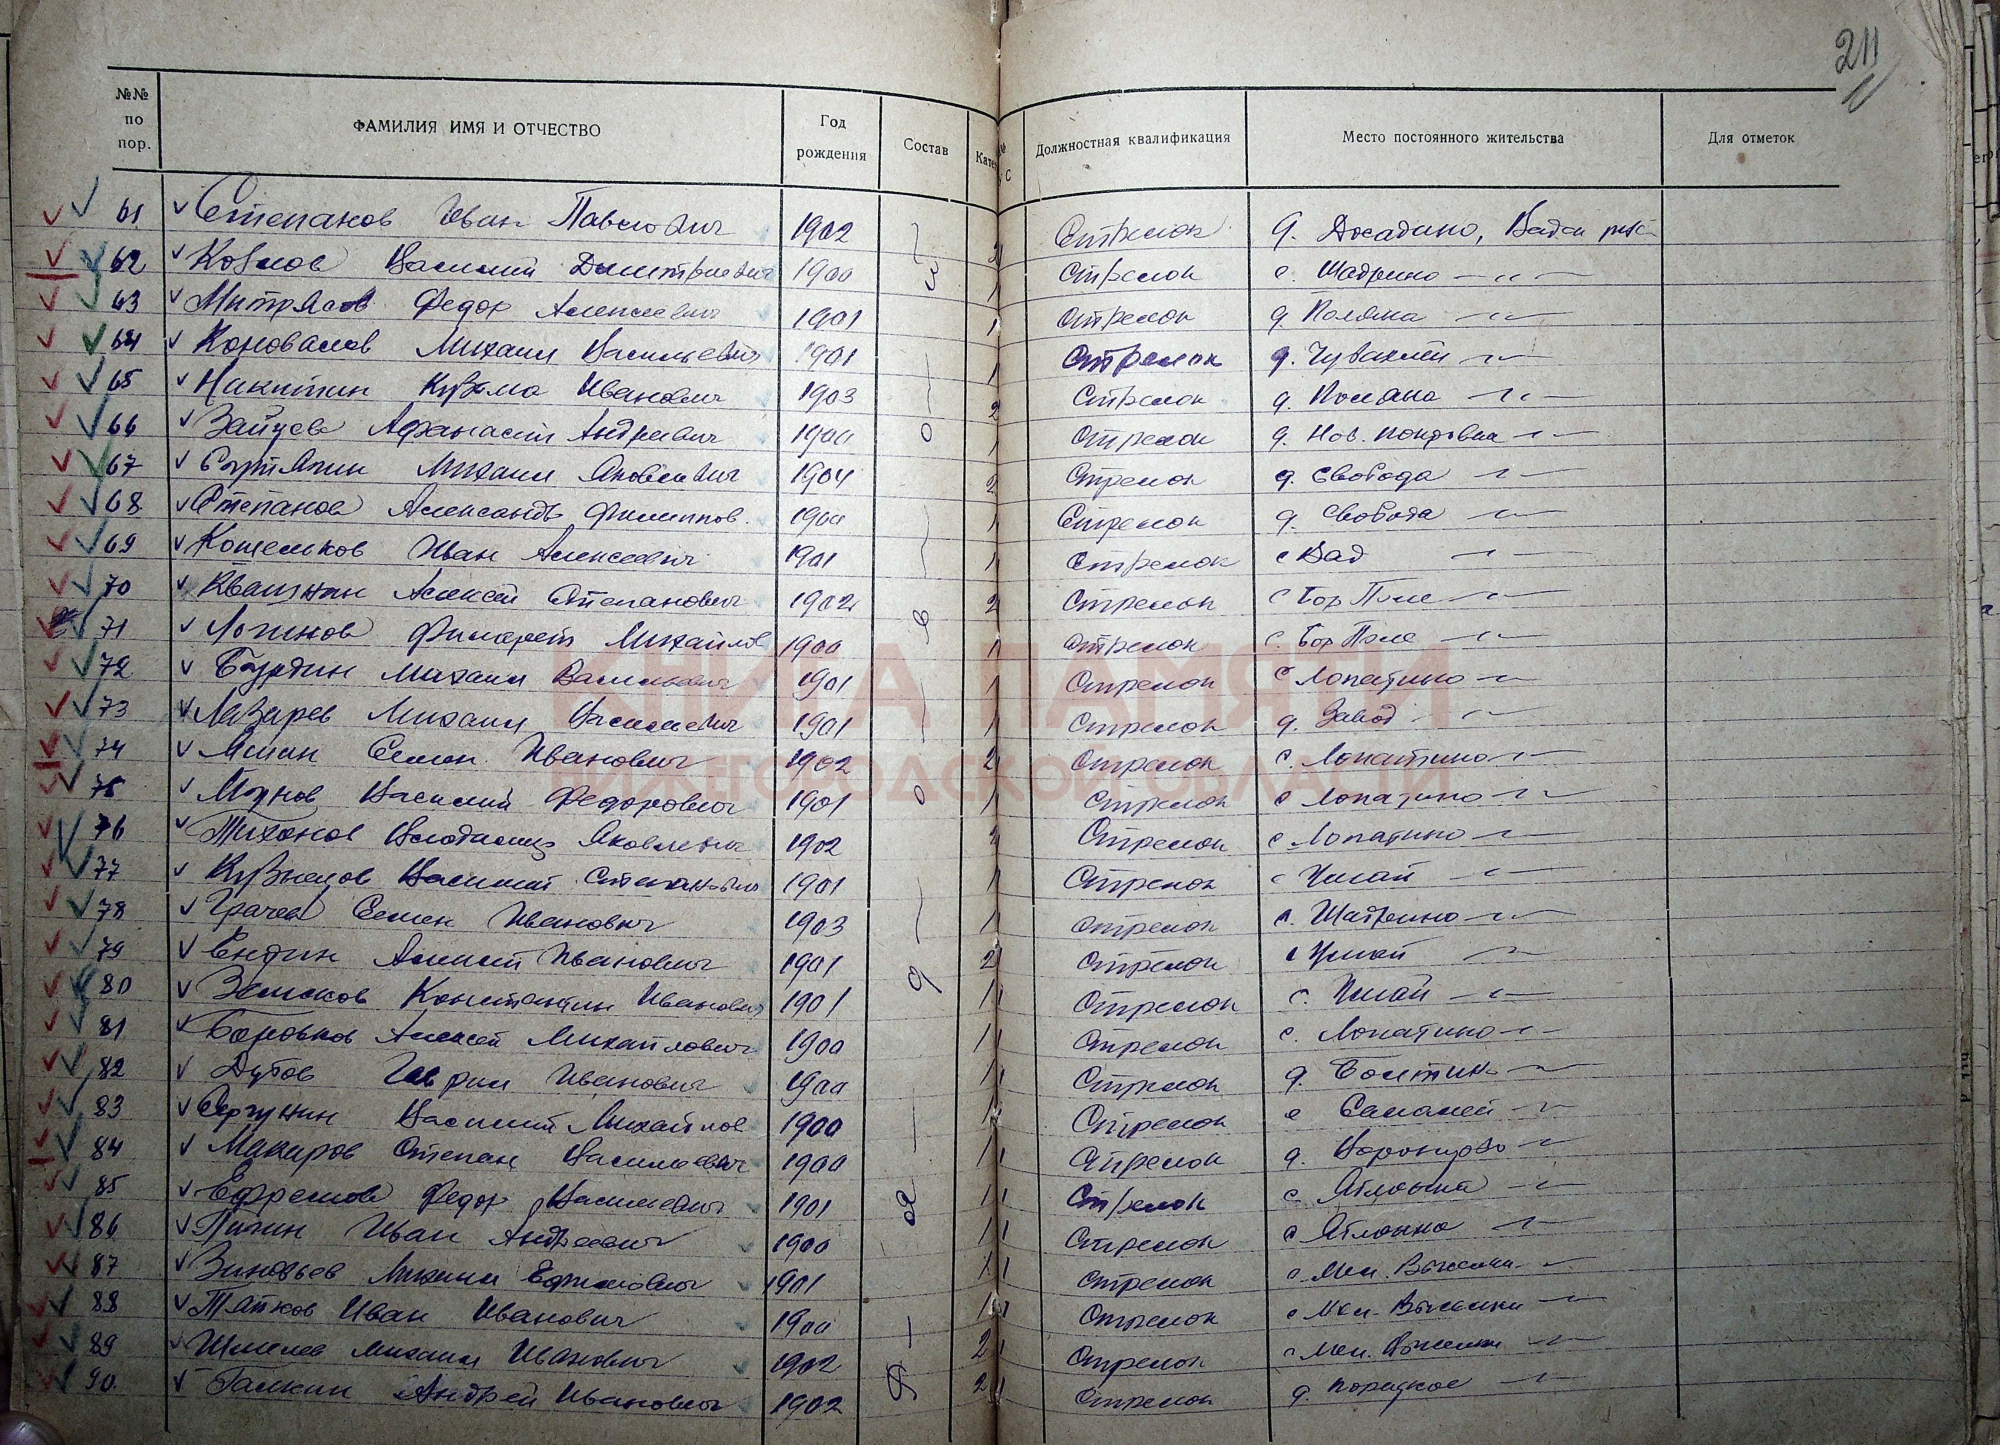 211
№№ по пор. ФАМИЛИЯ ИМЯ И ОТЧЕСТВО Год рождения Состав Должностная квалификация Место постоянного жительства Для отметок
61 Степанов Иван Павлович 1902 Стрелок д. Досадино, Вадск
62 Козлов Василий Дмитриевич 1900 Стрелок с. Шадрино —〃—
63 Митрясов Федор Алексеевич 1901 1 Стрелок д. Поляна —〃—
64 Коновалов Михаил Васильевич 1901 1 Стрелок д. Чувахлей —〃—
65 Никитин Кузьма Иванович 1903 2 Стрелок д. Поляна —〃—
66 Зайцев Афанасий Андреевич 1900 1 Стрелок д. Нов. —〃—
67 Михаил Яковлевич 1904 2 Стрелок д. Свобода —〃—
68 Степанов Александр Филиппов. 1900 1 Стрелок д. Свобода —〃—
69 Кошельков Иван Алексеевич 1901 1 Стрелок с Вад —〃—
70 Квашнин Алексей Степанович 1902 2 Стрелок с Бор Поле —〃—
71 Логинов Филарет Михайлов 1900 1 Стрелок с. Бор Поле —〃—
72 Бурдин Михаил Васильевич 1901 1 Стрелок с Лопатино —〃—
73 Лазарев Михаил Васильевич 1901 1 Стрелок д. Завод —〃—
74 Семен Иванович 1902 2 Стрелок с. Лопатино —〃—
75 Василий Федорович 1901 1 Стрелок с Лопатино —〃—
76 Тихонов Владимир Яковлевич 1902 2 Стрелок с Лопатино —〃—
77 Кузнецов Василий Степанович 1901 1 Стрелок с Умай —〃—
78 Грачев Семен Иванович 1903 1 Стрелок с. Шадрино —〃—
79 Ендин Алексей Иванович 1901 2 Стрелок с Умай —〃—
80 Земсков Константин Иванович 1901 1 Стрелок с. Умай —〃—
81 Боровков Алексей Михайлович 1900 1 Стрелок с. Лопатино —〃—
82 Дутов Гаврил Иванович 1900 1 Стрелок д. —〃—
83 Сергунин Василий Михайлов 1900 1 Стрелок с Салалей —〃—
84 Макаров Степан Васильевич 1900 1 Стрелок д. Воронцово —〃—
85 Ефремов Федор Васильевич 1901 1 Стрелок с. —〃—
86 Иван Андреевич 1900 1 Стрелок с —〃—
87 Зиновьев Михаил Ефимович 1901 1 Стрелок с
88 Тяпков Иван Иванович 1900 1 Стрелок с
89 Шмелев Михаил Иванович 1902 2 Стрелок с
90. Галкин Андрей Иванович 1902 2 Стрелок д. Порецкое —〃—
КНИГА ПАМЯТИ
НИЖЕГОРОДСКОЙ ОБЛАСТИ